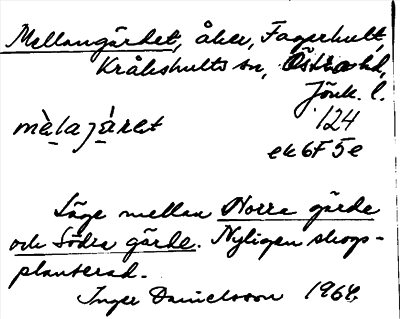 Mellangärdet, åker, Fagerhult,
Kråkshults sn, Östra hd,
Jönk. l.
mèlajáret 124
ek 6F 5e
Läge mellan Norra gärde
och Södra gärde. Nyligen skogs-
planterad.
Inger Danielsson 1964.